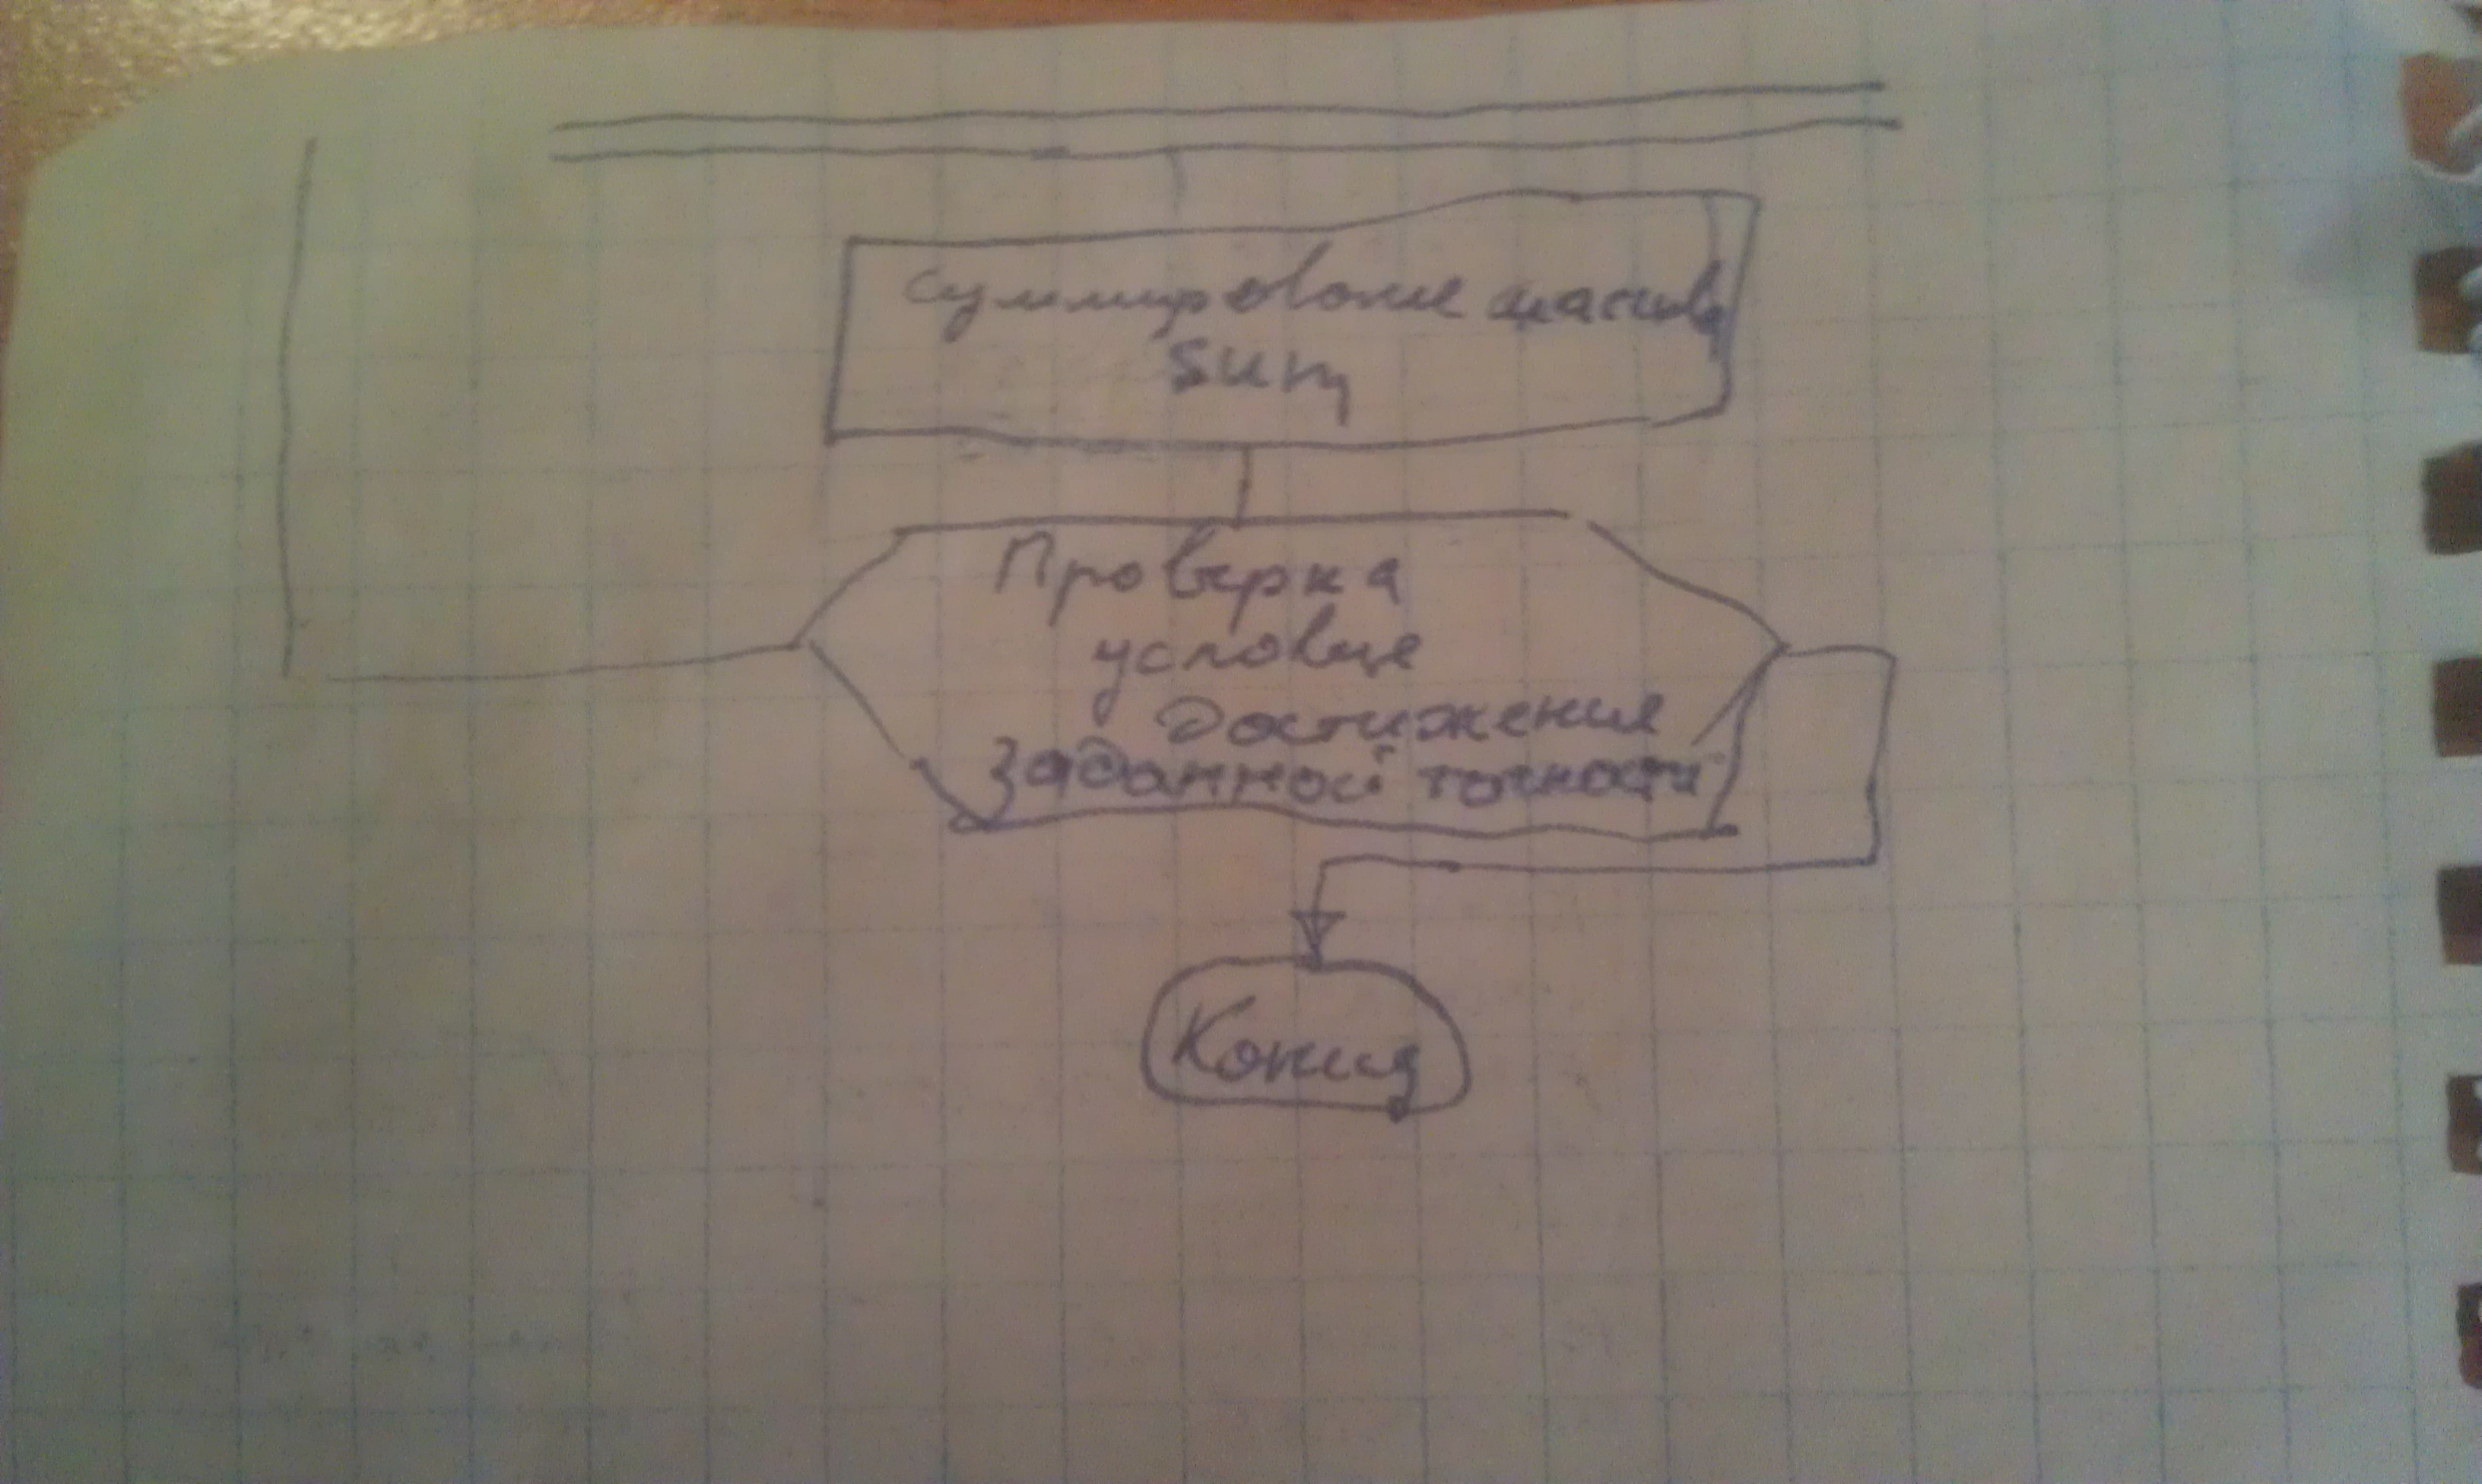 суммирование массива
sum
Проверка
условие
достижения
заданной точности
Конец